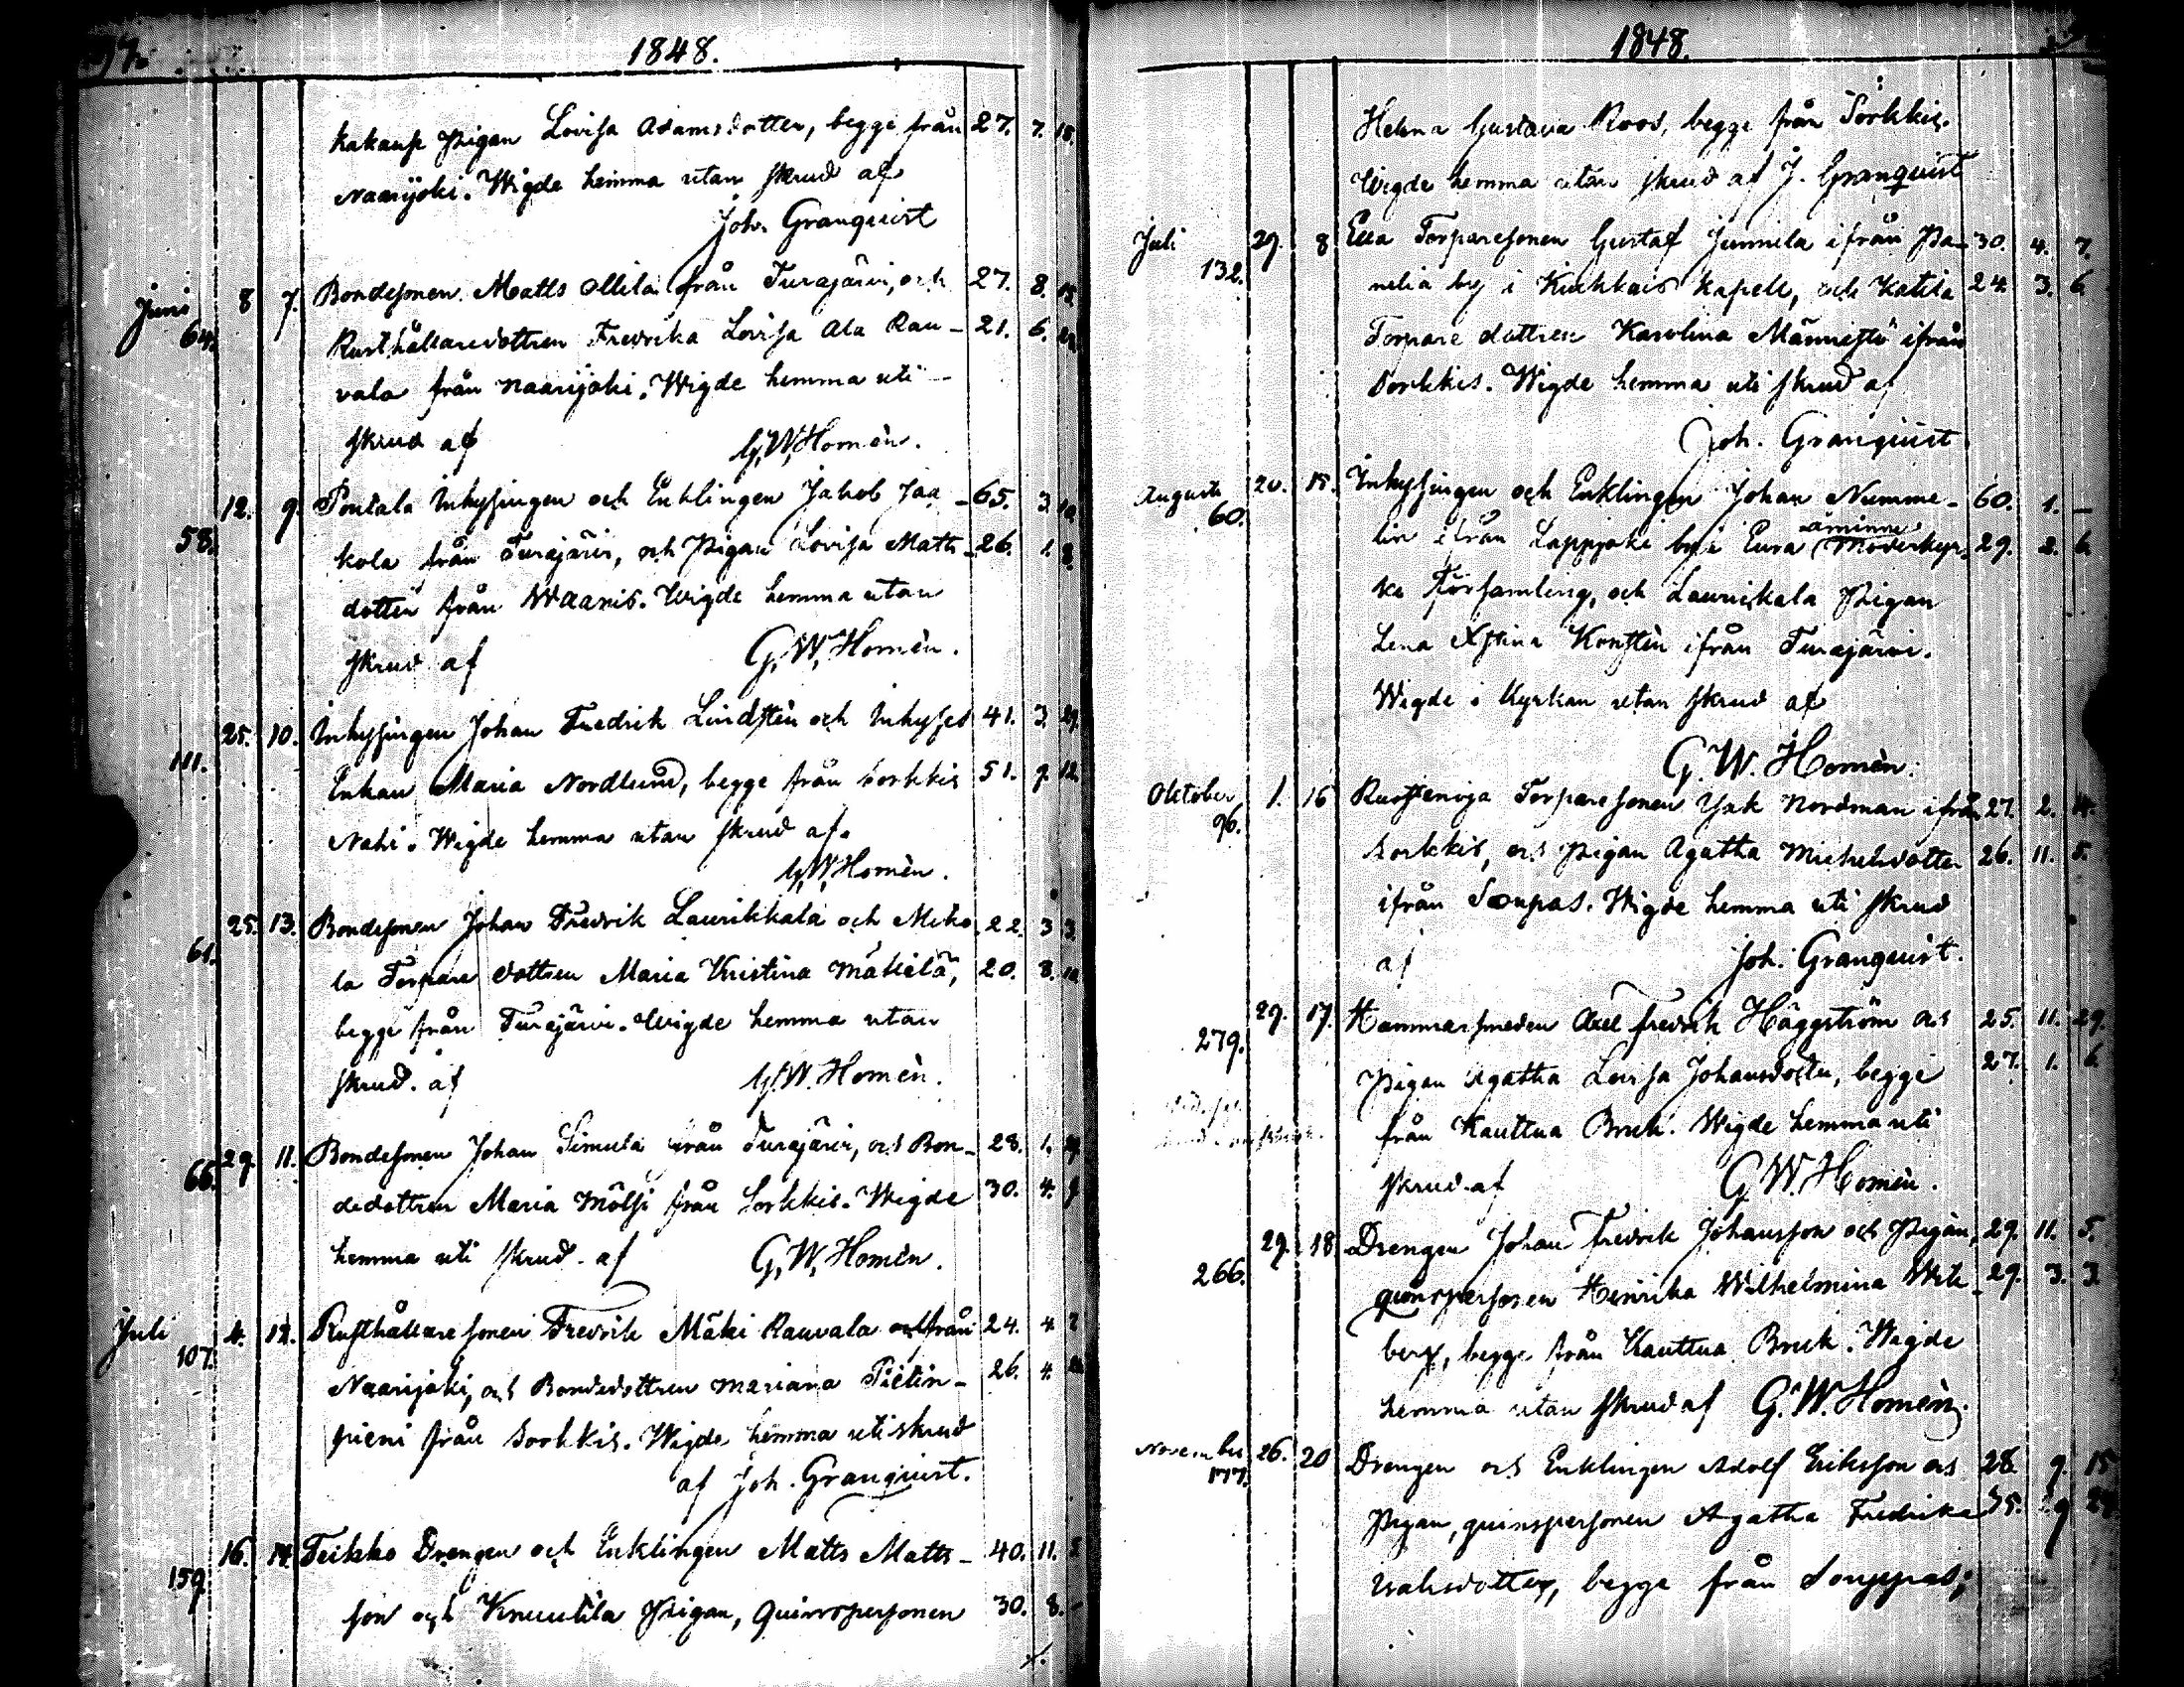 1848.
kakaus Pigan Lovisa Adamsdotter, begge från 27. 7. 18.
Naarijoki. Wigde hemma utan skrud af
Joh. Granquist
Juni 64. 8 7. Bondesonen Matts Ollila från Turajärvi, och 27. 8. 15.
Rusthållaredottren Fredrika Lovisa Ala Rau- 21. 6.
vala från Naarijoki. Wigde hemma uti
skrud af G. W. Homèn.
58. 12. 9. Pontala Inhysingen och Enklingen Jakob Jaa- 65. 3. 10
kola från Turajärvi, och Pigan Lovisa Matts- 26. 1. 8.
dotter från Waanis. Wigde hemma utan
skrud af G. W. Homèn.
111. 25. 10. Inhysingen Johan Fredrik Lindstèn och Inhyses 41. 3. 29
Enkan Maria Nordlund, begge från Sorkkis 51. 9. 12.
Nahi. Wigde hemma utan skrud af
G. W. Homèn.
61. 25. 13. Bondesonen Johan Fredrik Laurikkala och Miko 22. 3 3
la Torpare dottren Maria Kristina Mäkilä, 20. 8. 10
begge från Turajärvi. Wigde hemma utan
skrud af G. W. Homèn.
66. 29. 11. Bondesonen Johan Simula från Turajärvi, och Bon- 28. 1.
dedottren Maria Mölsi från Sorkkis. Wigde 30. 4.
hemma uti skrud af G. W. Homèn.
Juli 107. 4. 12. Rusthållaresonen Fredrik Mäki Rauvala från 24. 4
Naarijoki, och Bondedottren Mariana Pietin- 26. 4.
pieni från Sorkkis. Wigde hemma uti skrud
af Joh. Granquist.
159. 16. 14. Teikko Drengen och Enklingen Matts Matts- 40. 11.
son och Knuutila Pigan, Quinspersonen 30. 8.
1848.
Helena Gustava Roos, begge från Sorkkis.
Wigde hemma utan skrud af J. Granquist
Juli 132. 29. 8 Eua Torparesonen Gustaf Junnila ifrån Pa- 30. 4. 7.
nelia by i Kiukkais kapell, och Katila 24. 3. 6
Torpare dottren Karolina Männistö ifrån
Sorkkis. Wigde hemma uti skrud af
Joh. Granquist
Augusti 60. 20. 15. Inhysingen och Enklingen Johan Numme- 60. 1. —
åminne
lin ifrån Lappjoki by i Eura Moderkyr- 29. 2. 6.
ko Församling, och Laurikkala Pigan
Lena Xstina Konstèn ifrån Turajärvi.
Wigde i Kyrkan utan skrud af
G. W. Homèn.
Oktober 96. 1. 16 Torparesonen Isak Nordman ifrån 27. 2. 4.
Sorkkis, och Pigan Agatha Michelsdotter 26. 11. 5.
ifrån Soupas. Wigde hemma uti skrud
af Joh. Granquist.
279. 29. 17. Hammarsmeden Axel Fredrik Häggström och 25. 11. 29.
Pigan Agatha Lovisa Johansdotter, begge 27. 1. 6
från Kauttua Bruk. Wigde hemma uti
skrud af G. W. Homèn.
266. 29. 18 Drengen Johan Fredrik Johansson och Pigan, 29. 11. 5.
quinspersonen Henrika Wilhelmina Wik- 29. 3. 3
berg, begge från Kauttua Bruk. Wigde
hemma utan skrud af G. W. Homèn.
November 177. 26. 20 Drengen och Enklingen Adolf Eriksson och 28. 9. 15
Pigan, quinspersonen Agatha Fredrika 35. 9 29
Isaksdotter, begge från Souppas;